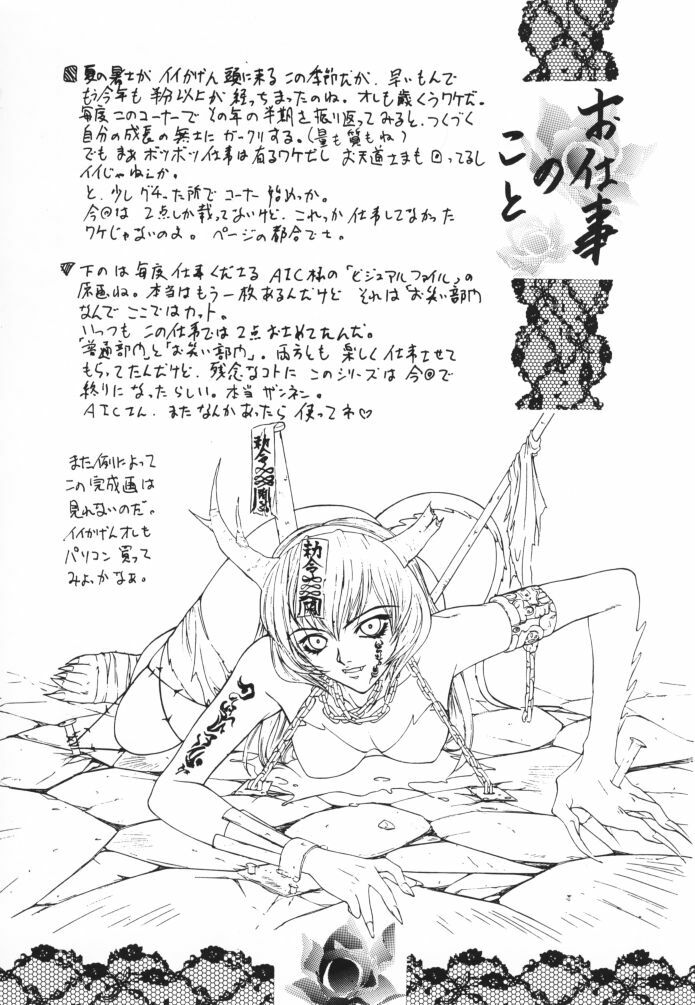 お仕事
の
こと
夏の暑さが イイかげん 頭に来る この季節だが、早いもんで
もう今年も 半分以上が 経っちまったのね。オレも歳くうワケだ。
毎度 このコーナーで その年の半期を 振り返ってみると、つくづく
自分の成長の無さに ガークリする。(量も質もね)
でも まあ ボツボツ仕事は有るワケだし お天道さまも 回ってるし
イイじゃねえか。
と、少し グチった所で コーナー 始めっか。
今回は 2点しか載ってないけど、これっか 仕事してなかった
ワケじゃないのよ。ページの都合でさ。
下のは 毎度 仕事くださる AIC様の「ビジュアルファイル」の
原画ね。本当はもう一枚あるんだけど それは「お笑い部門」
なんで ここではカット。
いつも この仕事では 2点おさめてたんだ。
「普通部門」と「お笑い部門」。両方とも 楽しく仕事させて
もらってたんだけど、残念なコトに このシリーズは 今回で
終りになったらしい。本当 ザンネン。
AICさん、また なんかあったら 使ってネ♡
また例によって
この完成画は
見れないのだ。
イイかげんオレも
パソコン買って
みよっかなぁ。
勅令
勅令